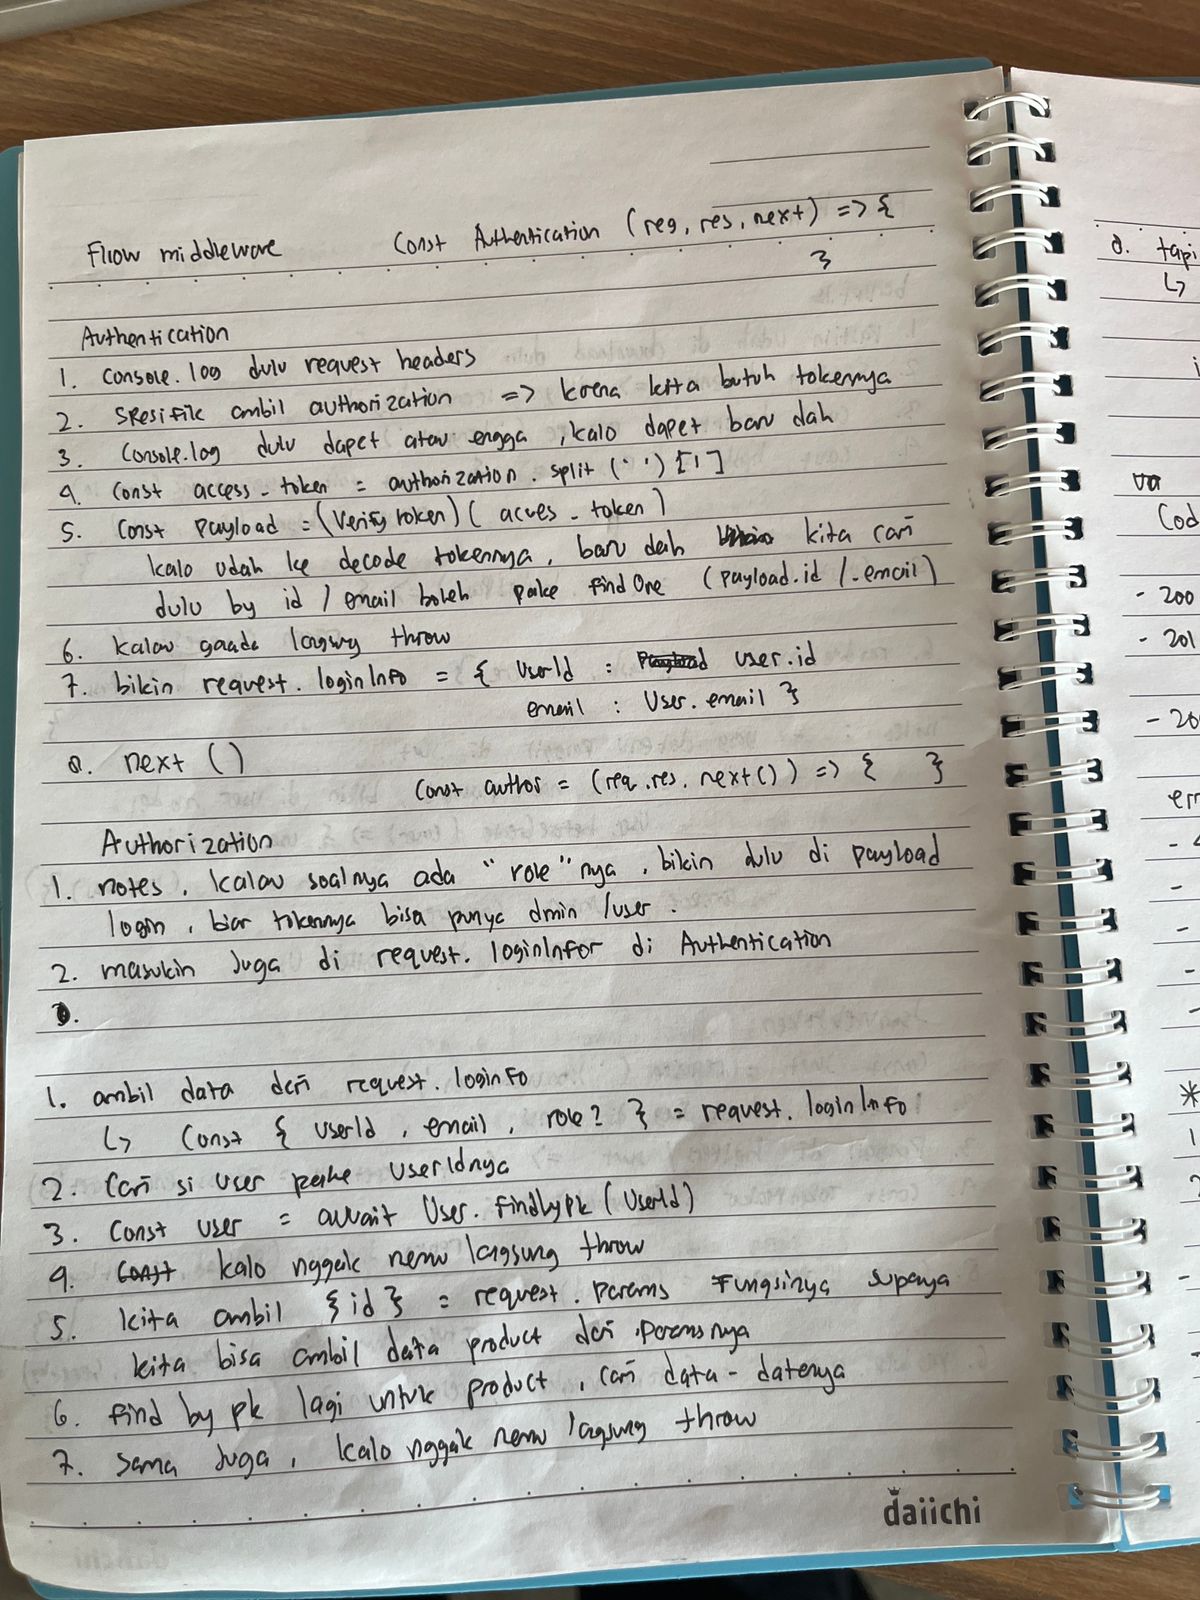 Flow middleware
Const Authentication (req, res, next) => {
}
Authentication
1. Console.log dulu request headers
2. Spesifik ambil authorization => karena kita butuh tokennya
3. Console.log dulu dapet atau engga, kalo dapet baru dah
4. Const access_token = authorization.split(' ')[1]
5. Const payload = (Verify token)(acces_token)
kalo udah ke decode tokennya, baru dah kita cari
dulu by id / email boleh pake findOne (payload.id / .email)
6. kalau gaada langsung throw
7. bikin request.loginInfo = { UserId : payload user.id
email : User.email }
8. next ()
Const author = (req.res.next()) => { }
Authorization
1. notes, kalau soalnya ada "role"nya, bikin dulu di payload
login, biar tokennya bisa punya dmin/user.
2. masukin Juga di request.loginInfor di Authentication
1. ambil data dari request.loginFo
↳ Const { UserId, email, role? } = request.loginInfo
2. Cari si user pake UserIdnya
3. Const user = await User.findbypk(UserId)
4. Const kalo nggak nemu langsung throw
5. kita ambil {id} = request.params Fungsinya supaya
kita bisa ambil data product dari .paramsnya
6. find by pk lagi untuk product, cari data-datanya
7. Sama Juga, kalo nggak nemu langsung throw
daiichi
8. tapi
↳
Cod
- 200
- 201
- 20
err
*
1
2